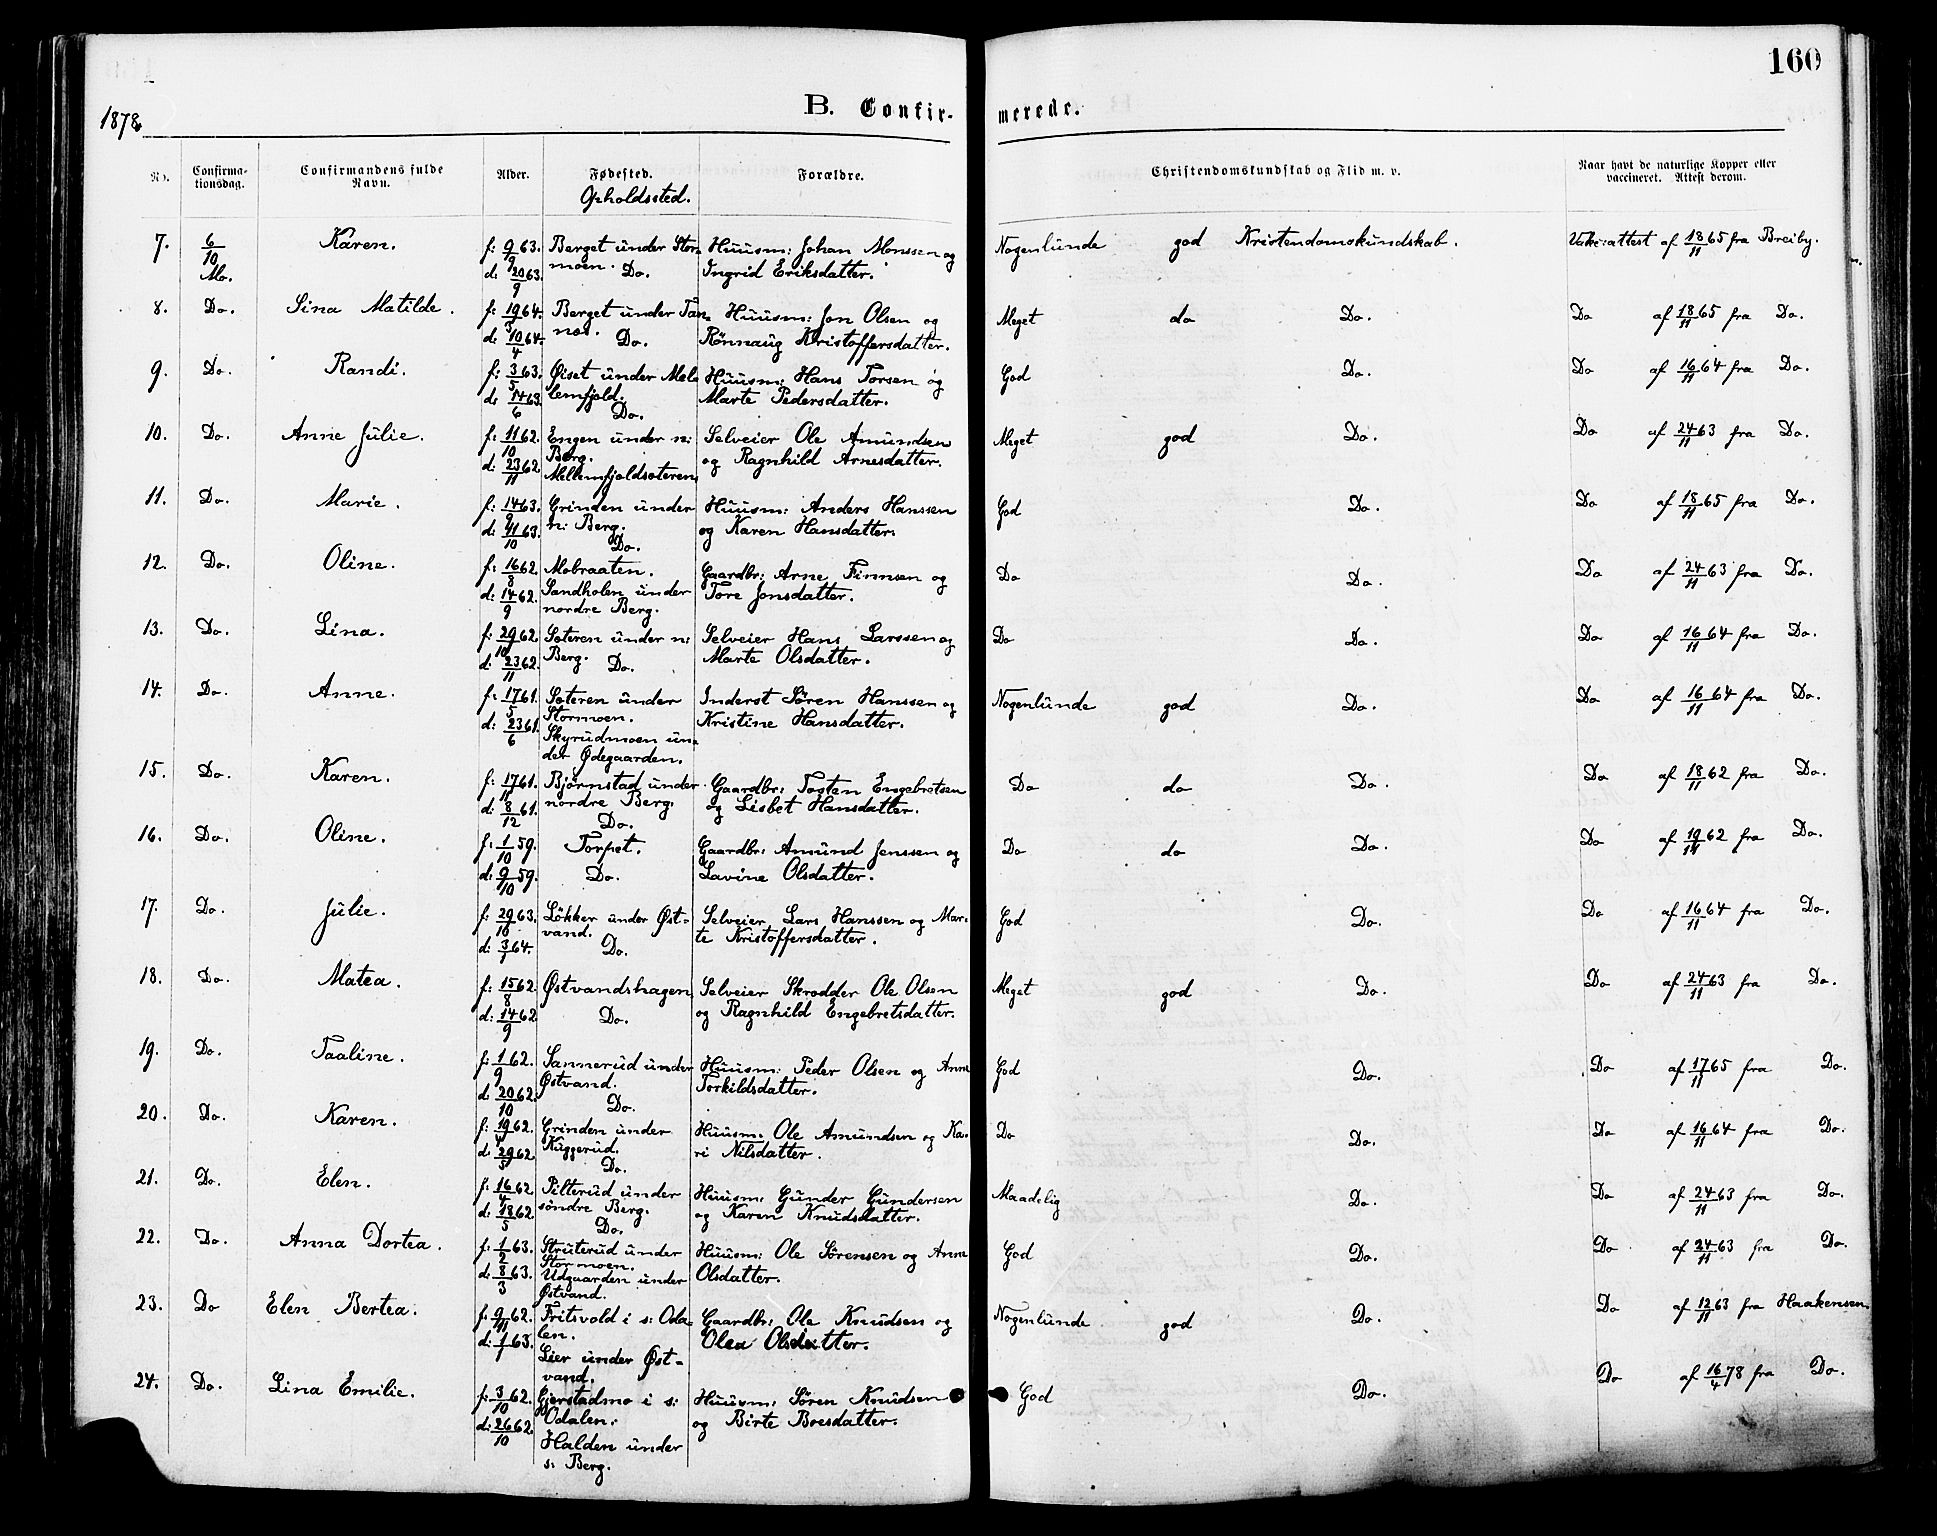 160
1878
B. Confir-
merede.
No.
Confirma-
tionsdag.
Confirmandens fulde
Navn.
Alder.
Fødested.
Opholdssted.
Forældre.
Christendomskundskab og Flid m. v.
Naar havt de naturlige Kopper eller
vaccineret. Attest derom.
7. 6/10 Karen. f: 9/9 63. Berget under Stor- Huusm: Johan Monssen og Nogenlunde god Kristendomskundskab. Vakc:attest af 18/11 65 fra Breiby.
Mo. d: 20/9 63. moen. Do. Ingrid Eriksdatter.
8. Do. Lina Matilde. f: 19/3 64. Berget under Tan- Huusm: Jon Olsen og Meget do Do. Do af 18/11 65 fra Do.
d: 10/4 64. nes. Do. Rønnaug Kristoffersdatter.
9. Do. Randi. f: 3/5 63. Øiset under Mel- Huusm: Hans Torsen og God Do. Do af 16/11 64 fra Do.
d: 14/6 63. lemfjeld. Do. Marte Pedersdatter.
10. Do. Anne Julie. f: 11/10 62. Engen under n: Selveier Ole Amundsen Meget god Do. Do af 24/11 63 fra Do.
d: 23/11 62. Berg. og Ragnhild Arnesdatter.
Mellemfjeldsæteren
11. Do. Marie. f: 14/9 63. Grinden under Huusm: Anders Hanssen God Do. Do af 18/11 65 fra Do.
d: 11/10 63. n: Berg. Do. og Karen Hansdatter.
12. Do. Oline. f: 16/8 62. Mobraaten. Gaardbr: Arne Finnsen og Do Do. Do af 24/11 63 fra Do.
d: 14/9 62. Sandholen under Tore Jonsdatter.
nordre Berg.
13. Do. Lina. f: 29/10 62. Sæteren under n: Selveier Hans Larssen og Do Do. Do af 16/11 64 fra Do.
d: 23/11 62. Berg. Do. Marte Olsdatter.
14. Do. Anne. f: 17/5 61. Sæteren under Inderst Søren Hanssen og Nogenlunde god Do. Do af 16/11 64 fra Do.
d: 23/6 61. Stormoen. Kristine Hansdatter.
Skyrudmoen un-
der Ødegaarden.
15. Do. Karen. f: 17/11 61. Bjørnstad under Gaardbr: Tosten Engebretsen Do do Do. Do af 18/11 62 fra Do.
d: 8/12 61. nordre Berg. Do. og Lisbet Hansdatter.
16. Do. Oline. f: 1/10 59. Torpet. Gaardbr: Amund Jenssen og Do do Do. Do af 19/11 62 fra Do.
d: 9/10 59. Do. Lavine Olsdatter.
17. Do. Julie. f: 29/10 63. Løkker under Øst- Selveier Lars Hanssen og Mar- God Do. Do af 16/11 64 fra Do.
d: 3/1 64. vand. Do. te Kristoffersdatter.
18. Do. Matea. f: 15/8 62. Østvandshagen Selveier Skrædder Ole Olsen Meget god Do. Do af 24/11 63 fra Do.
d: 14/9 62. Do. og Ragnhild Engebretsdatter.
19. Do. Taaline. f: 1/9 62. Sannerud under Huusm: Peder Olsen og Anne God Do. Do af 17/11 65 fra Do.
d: 20/10 62. Østvand. Do. Torkildsdatter.
20. Do. Karen. f: 19/4 62. Grinden under Huusm: Ole Amundsen og Ka- Do Do. Do af 16/11 64 fra Do.
d: 29/5 62. Kuggerud. Do. ri Nilsdatter.
21. Do. Elen. f: 16/4 62. Pilterud under Huusm: Gunder Gundersen Maadelig Do. Do af 24/11 63 fra Do.
d: 18/5 62. søndre Berg. Do. og Karen Knudsdatter.
22. Do. Anna Dortea. f: 1/2 63. Struterud under Huusm: Ole Sørensen og Anne God Do. Do af 24/11 63 fra Do.
d: 8/3 63. Stormoen. Olsdatter.
Udgaarden under
Østvand.
23. Do Elen Bertea. f: 9/11 62. Fritsvold i s: Oda- Gaardbr: Ole Knudsen og Nogenlunde god Do. Do af 12/11 63 fra Haakensen.
d: 1/1 63. len. Olea Olsdatter.
Lier under Øst-
vand.
24. Do. Lina Emilie. f: 3/10 62. Gjerstadmo i s: Huusm: Søren Knudsen God Do. Do af 16/4 78 fra Do.
d: 26/10 62. Odalen. og Birte Boesdatter.
Halden under
s: Berg.